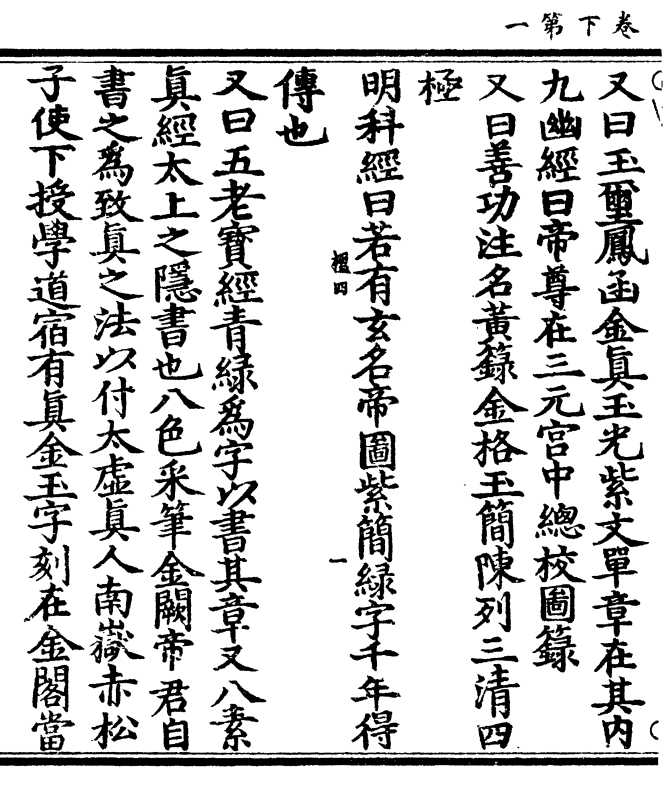 卷下第一
又曰玉璽鳳函金眞玉光紫文單章在其内
九幽經曰帝尊在三元宫中總校圖籙
又曰善功注名黃籙金格玉簡陳列三清四
極
明科經曰若有玄名帝圖紫簡綠字千年得
榲四
一
傳也
又曰五老寶經青緑為字以書其章又八素
眞經太上之隱書也八色采筆金闕帝君自
書之為致眞之法以付太虛眞人南嶽赤松
子使下授學道宿有眞金玉字刻在金閣當